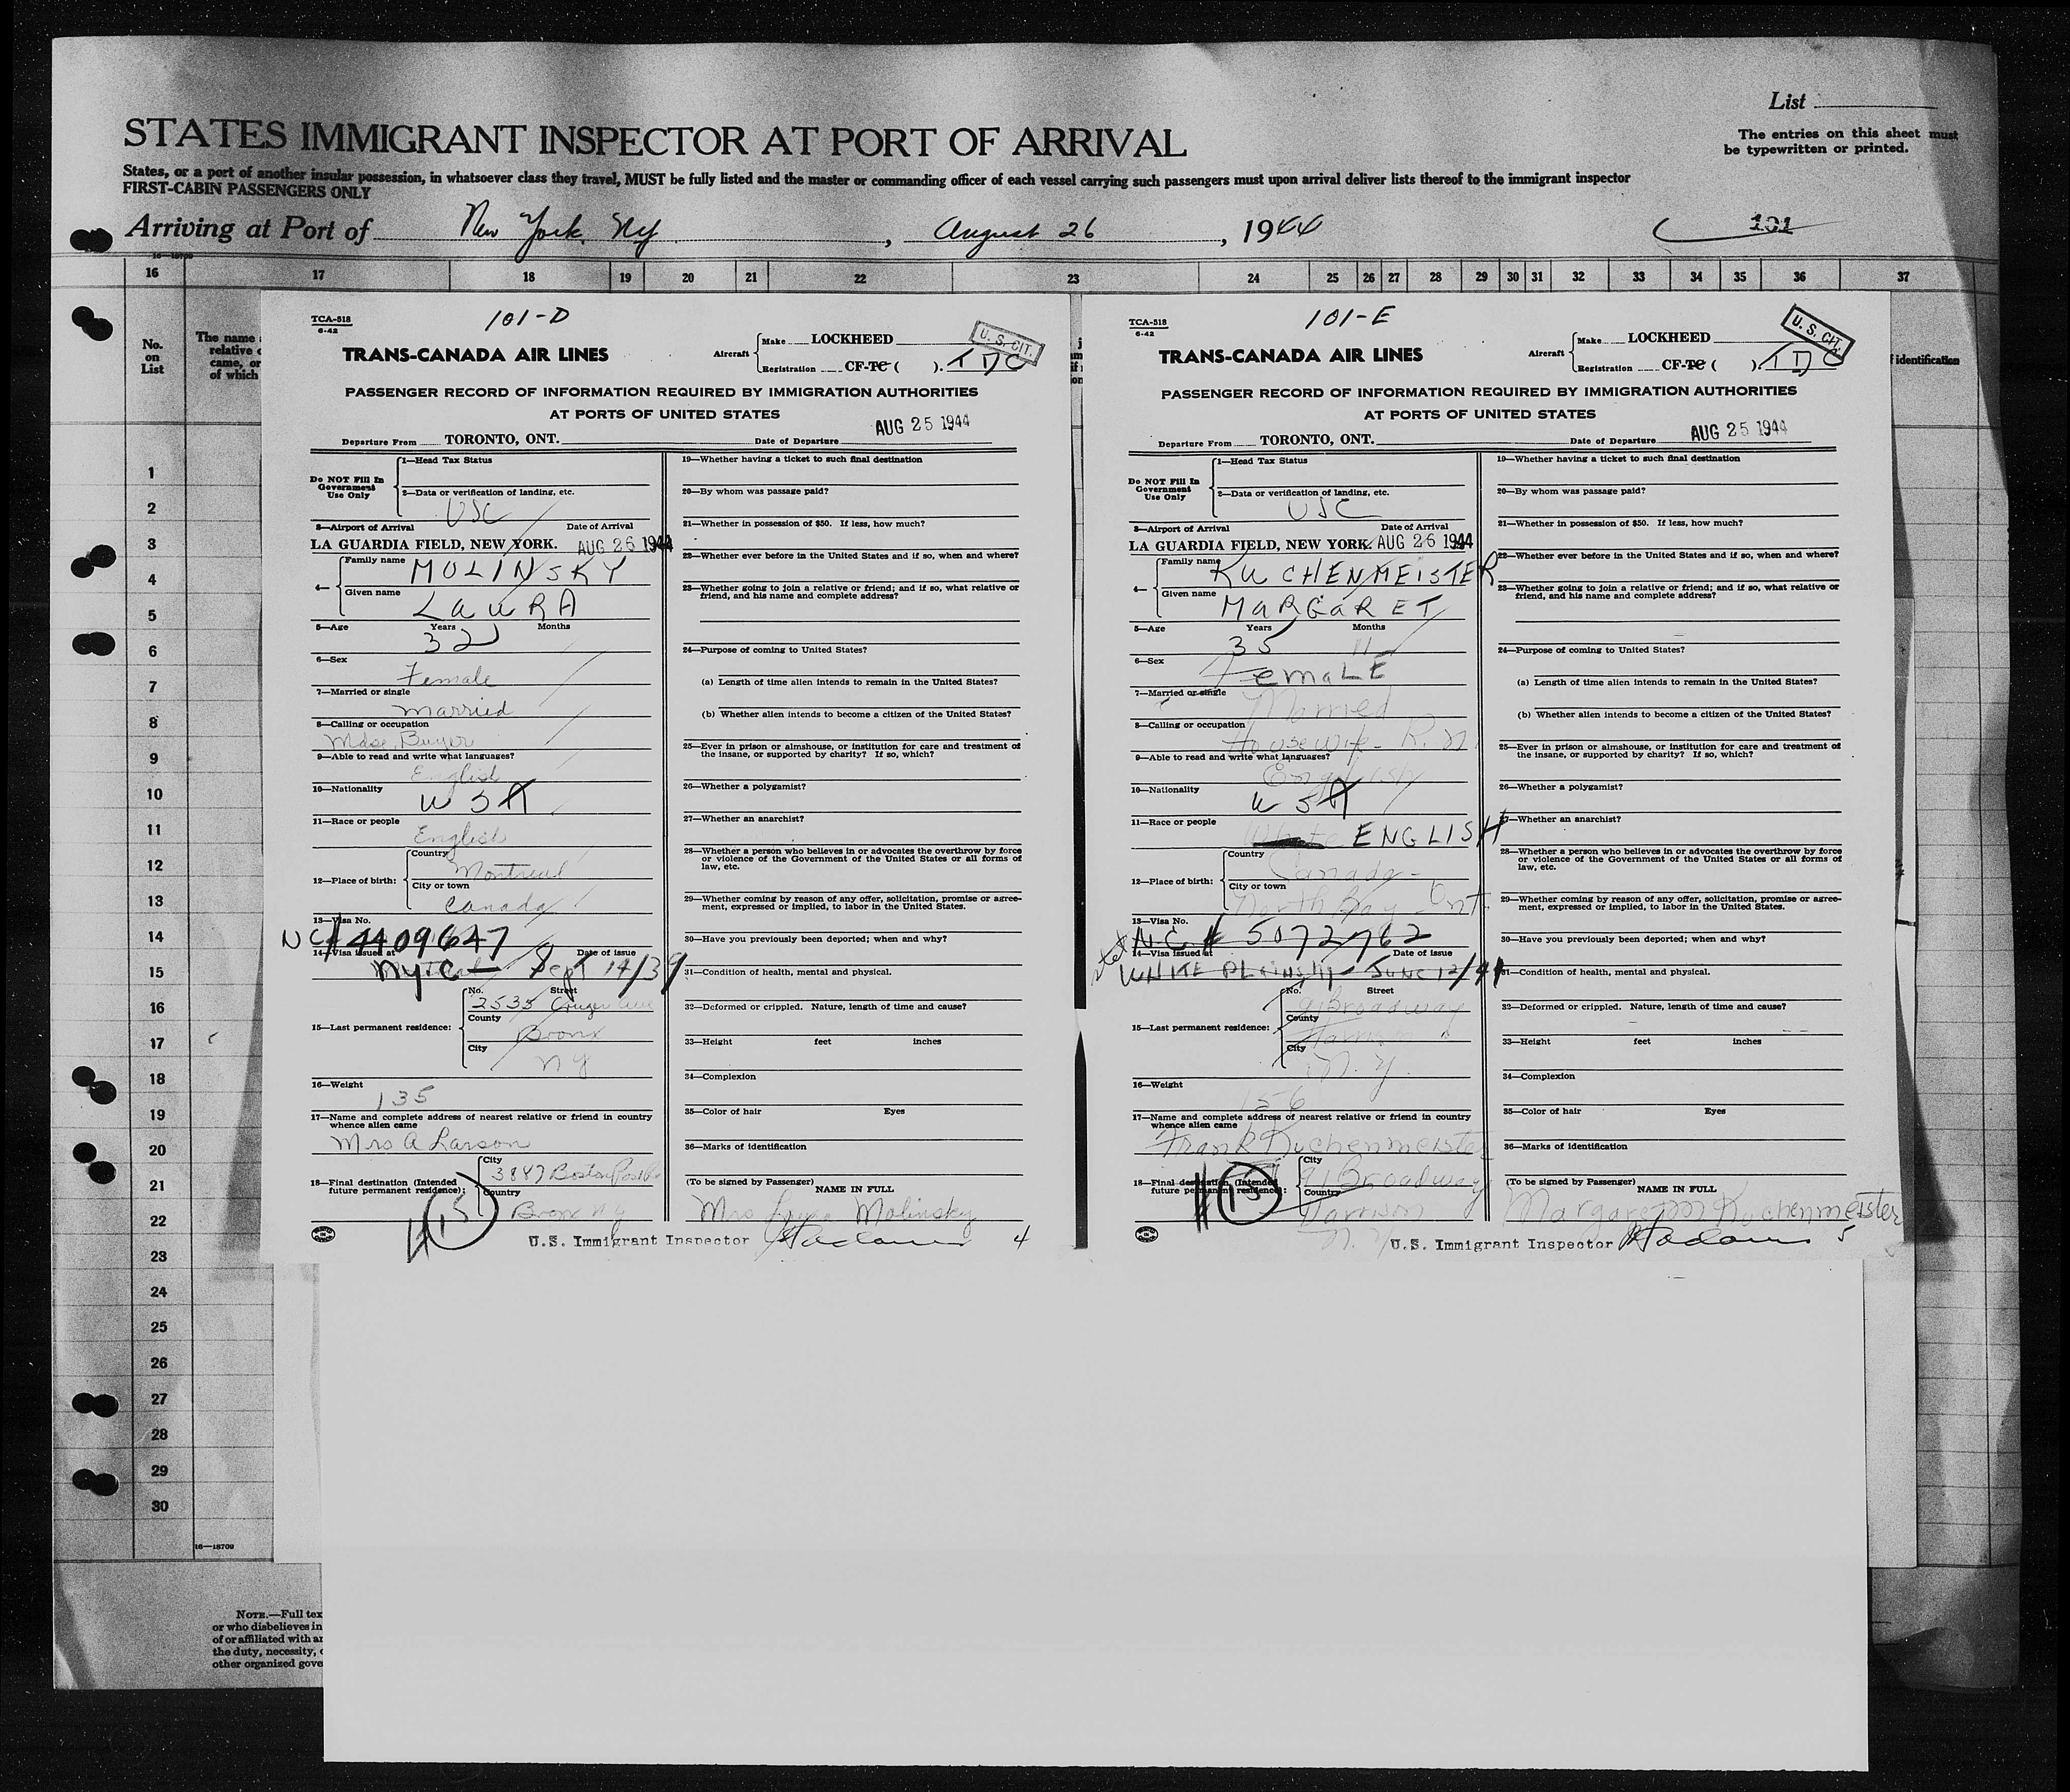 List
The entries on this sheet must
be typewritten or printed.
STATES IMMIGRANT INSPECTOR AT PORT OF ARRIVAL
States, or a port of another insular possession, in whatsoever class they travel, MUST be fully listed and the master or commanding officer of each vessel carrying such passengers must upon arrival deliver lists thereof to the immigrant inspector
FIRST-CABIN PASSENGERS ONLY
Arriving at Port of New York, Ny, August 26, 1944 101
16 17 18 19 20 21 22 23 24 25 26 27 28 29 30 31 32 33 34 35 36 37
No.
on
List
The name
relative
came, or
of which
f identification
1
2
3
4
5
6
7
8
9
10
11
12
13
14
15
16
17
18
19
20
21
22
23
24
25
26
27
28
29
30
16—18709
NOTE.—Full tex
or who disbelieves in
of or affiliated with an
the duty, necessity,
other organized gove
TCA-518
6-42
101-D
U. S. CIT.
TRANS-CANADA AIR LINES
Aircraft
Make LOCKHEED
Registration CF-TC ( ). TDC
PASSENGER RECORD OF INFORMATION REQUIRED BY IMMIGRATION AUTHORITIES
AT PORTS OF UNITED STATES
Departure From TORONTO, ONT. Date of Departure AUG 25 1944
Do NOT Fill In
Government
Use Only
1—Head Tax Status
2—Data or verification of landing, etc.
USC
3—Airport of Arrival Date of Arrival
LA GUARDIA FIELD, NEW YORK. AUG 26 1944
4—
Family name MOLINSKY
Given name LAURA
5—Age Years Months
32
6—Sex
Female
7—Married or single
Married
8—Calling or occupation
Mdse. Buyer
9—Able to read and write what languages?
English
10—Nationality
USA
11—Race or people
English
12—Place of birth:
Country
Montreal
City or town
Canada
13—Visa No.
NC# 4409647
14—Visa issued at Date of issue
NYC — Sept 14/39
15—Last permanent residence:
No. Street
2535 Cruger Ave
County
Bronx
City
NY
16—Weight
135
17—Name and complete address of nearest relative or friend in country
whence alien came
Mrs A Larson
18—Final destination (Intended
future permanent residence):
City
3847 Boston Post
Country
Bronx NY
15
19—Whether having a ticket to such final destination
20—By whom was passage paid?
21—Whether in possession of $50. If less, how much?
22—Whether ever before in the United States and if so, when and where?
23—Whether going to join a relative or friend; and if so, what relative or
friend, and his name and complete address?
24—Purpose of coming to United States?
(a) Length of time alien intends to remain in the United States?
(b) Whether alien intends to become a citizen of the United States?
25—Ever in prison or almshouse, or institution for care and treatment of
the insane, or supported by charity? If so, which?
26—Whether a polygamist?
27—Whether an anarchist?
28—Whether a person who believes in or advocates the overthrow by force
or violence of the Government of the United States or all forms of
law, etc.
29—Whether coming by reason of any offer, solicitation, promise or agree-
ment, expressed or implied, to labor in the United States.
30—Have you previously been deported; when and why?
31—Condition of health, mental and physical.
32—Deformed or crippled. Nature, length of time and cause?
33—Height feet inches
34—Complexion
35—Color of hair Eyes
36—Marks of identification
(To be signed by Passenger)
NAME IN FULL
Mrs Laura Molinsky
U.S. Immigrant Inspector 4
TCA-518
6-42
101-E
U. S. CIT.
TRANS-CANADA AIR LINES
Aircraft
Make LOCKHEED
Registration CF-TC ( ). TDC
PASSENGER RECORD OF INFORMATION REQUIRED BY IMMIGRATION AUTHORITIES
AT PORTS OF UNITED STATES
Departure From TORONTO, ONT. Date of Departure AUG 25 1944
Do NOT Fill In
Government
Use Only
1—Head Tax Status
2—Data or verification of landing, etc.
USC
3—Airport of Arrival Date of Arrival
LA GUARDIA FIELD, NEW YORK. AUG 26 1944
4—
Family name KUCHENMEISTER
Given name MARGARET
5—Age Years Months
35 11
6—Sex
FemaLE
7—Married or single
Married
8—Calling or occupation
Housewife - R.N.
9—Able to read and write what languages?
English
10—Nationality
USA
11—Race or people
White ENGLISH
12—Place of birth:
Country
Canada -
City or town
North Bay - Ont
13—Visa No.
N.C. # 5072762
14—Visa issued at Date of issue
WHITE PLAINS NY - JUNE 12/41
15—Last permanent residence:
No. Street
91 Broadway
County
Harrison
City
N.Y.
16—Weight
156
17—Name and complete address of nearest relative or friend in country
whence alien came
Frank Kuchenmeister
18—Final destination (Intended
future permanent residence):
City
91 Broadway
Country
Harrison
N.Y
15
19—Whether having a ticket to such final destination
20—By whom was passage paid?
21—Whether in possession of $50. If less, how much?
22—Whether ever before in the United States and if so, when and where?
23—Whether going to join a relative or friend; and if so, what relative or
friend, and his name and complete address?
24—Purpose of coming to United States?
(a) Length of time alien intends to remain in the United States?
(b) Whether alien intends to become a citizen of the United States?
25—Ever in prison or almshouse, or institution for care and treatment of
the insane, or supported by charity? If so, which?
26—Whether a polygamist?
27—Whether an anarchist?
28—Whether a person who believes in or advocates the overthrow by force
or violence of the Government of the United States or all forms of
law, etc.
29—Whether coming by reason of any offer, solicitation, promise or agree-
ment, expressed or implied, to labor in the United States.
30—Have you previously been deported; when and why?
31—Condition of health, mental and physical.
32—Deformed or crippled. Nature, length of time and cause?
33—Height feet inches
34—Complexion
35—Color of hair Eyes
36—Marks of identification
(To be signed by Passenger)
NAME IN FULL
Margaret M Kuchenmeister
U.S. Immigrant Inspector 5